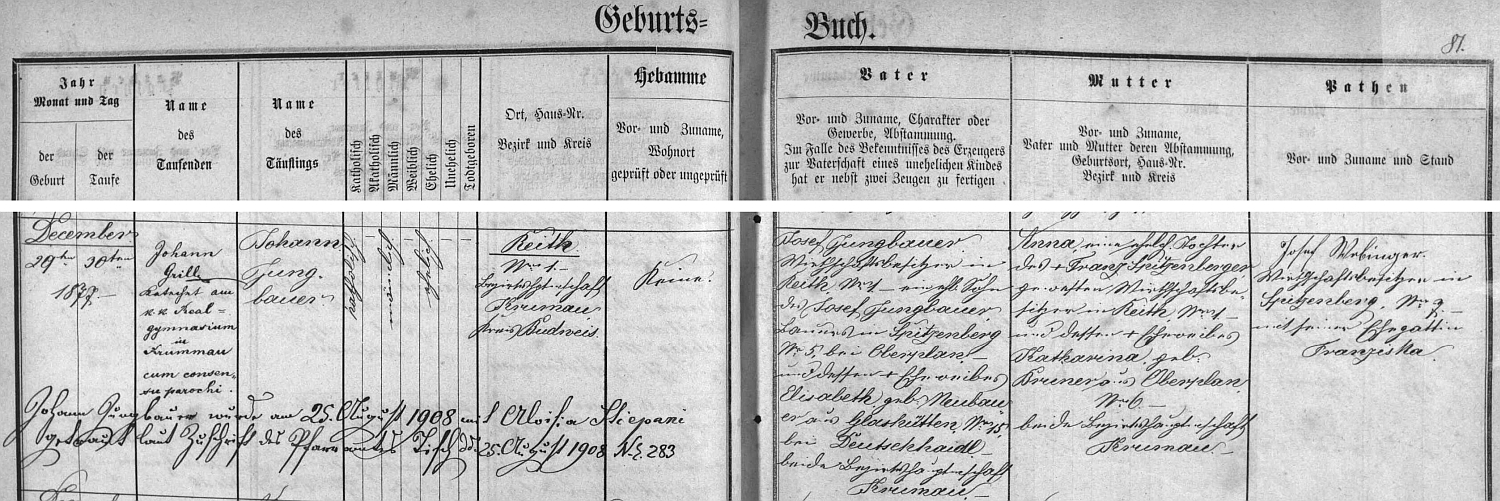 Geburts= Buch.
81.
Jahr
Monat und Tag
der Geburt
der Taufe
Name
des
Taufenden
Name
des
Täuflings
Katholisch
Akatholisch
Männlich
Weiblich
Ehelich
Unehelich
Todtgeboren
Ort, Haus-Nr.
Bezirk und Kreis
Hebamme
Vor- und Zuname,
Wohnort
geprüft oder ungeprüft
Vater
Vor- und Zuname, Charakter oder
Gewerbe, Abstammung.
Im Falle des Bekenntnisses des Erzeugers
zur Vaterschaft eines unehelichen Kindes
hat er nebst zwei Zeugen zu fertigen
Mutter
Vor- und Zuname,
Vater und Mutter deren Abstammung,
Geburtsort, Haus-Nr.
Bezirk und Kreis
Pathen
Vor- und Zuname und Stand
December
29ten 30ten
1877.
Johann
Grill
Katechet am
k.k. Real=
gymnasium
in
Krummau
cum consen-
su parochi.
Johann
Jung.
bauer
katholisch
männlich
ehelich
Reith
Nr 1.
Bezirkshptmschaft
Krumau
Kreis Budweis.
Keine.
Josef Jungbauer
Wirthschaftsbesitzer in
Reith Nr 1 – ein ehl. Sohn
des Josef Jungbauer
Bauers in Spitzenberg
Nr 5, bei Oberplan –
und dessen + Eheweibes
Elisabeth geb. Neubau
er aus Glashütten, Nr 15,
bei Deutschhaidl –
beide Bezirkshauptmschaft
Krumau. –
Anna eine ehel. Tochter
des + Franz Spitzenberger
gewesten Wirthschaftsbe-
sitzer in Reith Nr 1 –
und dessen + Eheweibes
Katharina, geb.
aus Oberplan
Nr 6 –
beide Bezirkshauptmschaft
Krumau. –
Josef Webinger
Wirthschaftsbesitzer in
Spitzenberg, Nr 9 –
mit seiner Ehegattin
Franziska.
Johann Jungbauer wurde am 25. August 1908 mit Aloisia Stiepani
getraut laut Zuschrift des Pfarramtes Tisch dd. 25 August 1908 N.E. 283